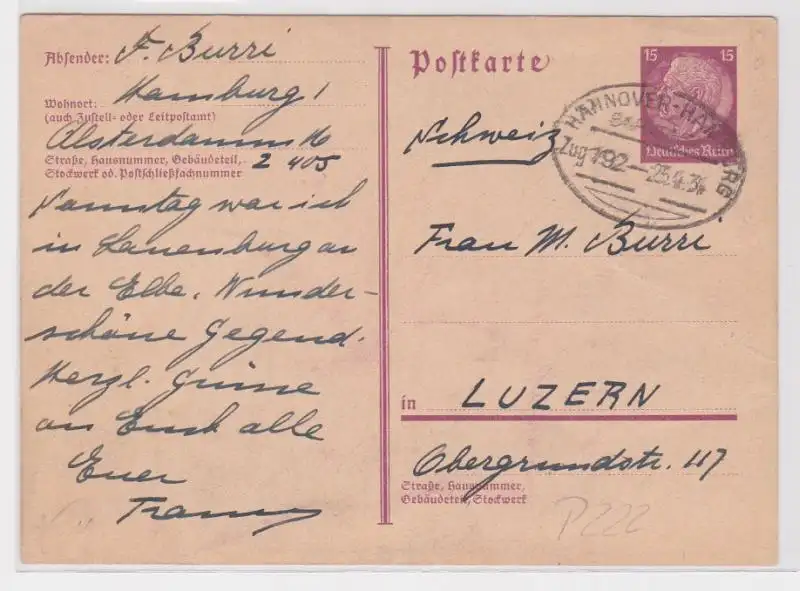 Absender: F. Burri
Wohnort: Hamburg 1
(auch Zustell- oder Leitpostamt)
Alsterdamm 16
Straße, Hausnummer, Gebäudeteil, 2 405
Stockwerk od. Postschließfachnummer
Sonntag war ich
in Lauenburg an
der Elbe. Wunder-
schöne Gegend.
Herzl. Grüsse
an Euch alle
Euer
Postkarte
15 15
Deutsches Reich
HANNOVER-HAMBURG
Zug 192
25.4.34
Schweiz
Frau M. Burri
in LUZERN
Obergrundstr. 47
Straße, Hausnummer,
Gebäudeteil, Stockwerk
P222